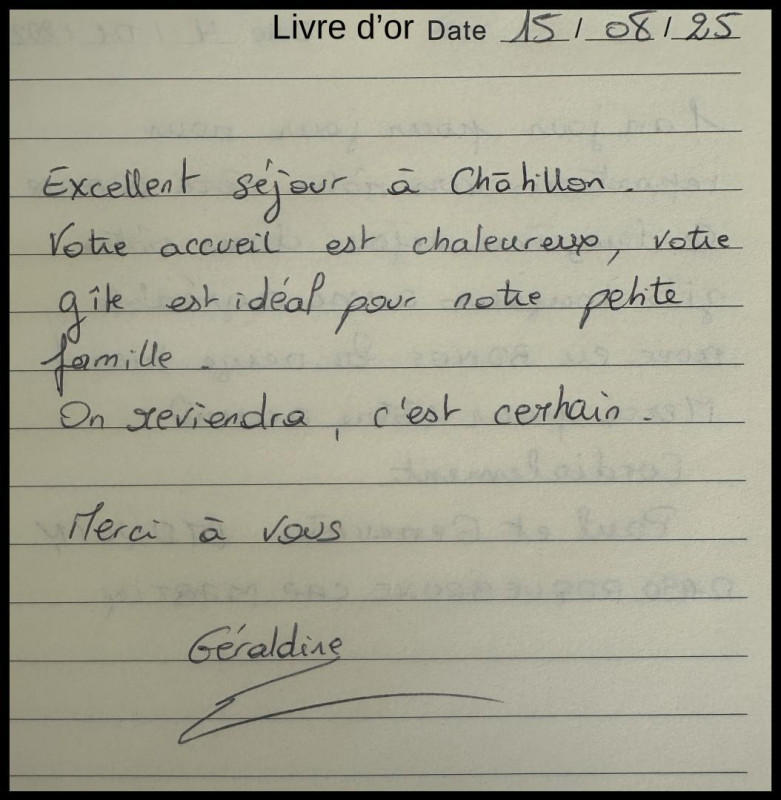 Livre d'or Date 15 / 08 / 25
Excellent séjour à Châtillon.
Votre accueil est chaleureux, votre
gîte est idéal pour notre petite
famille.
On reviendra, c'est certain.
Merci à vous
Géraldine